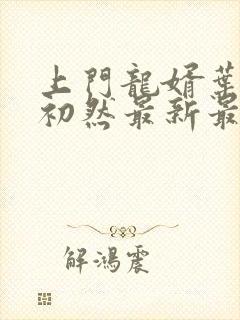 上門龍婿葉
初然最新最
解鴻震